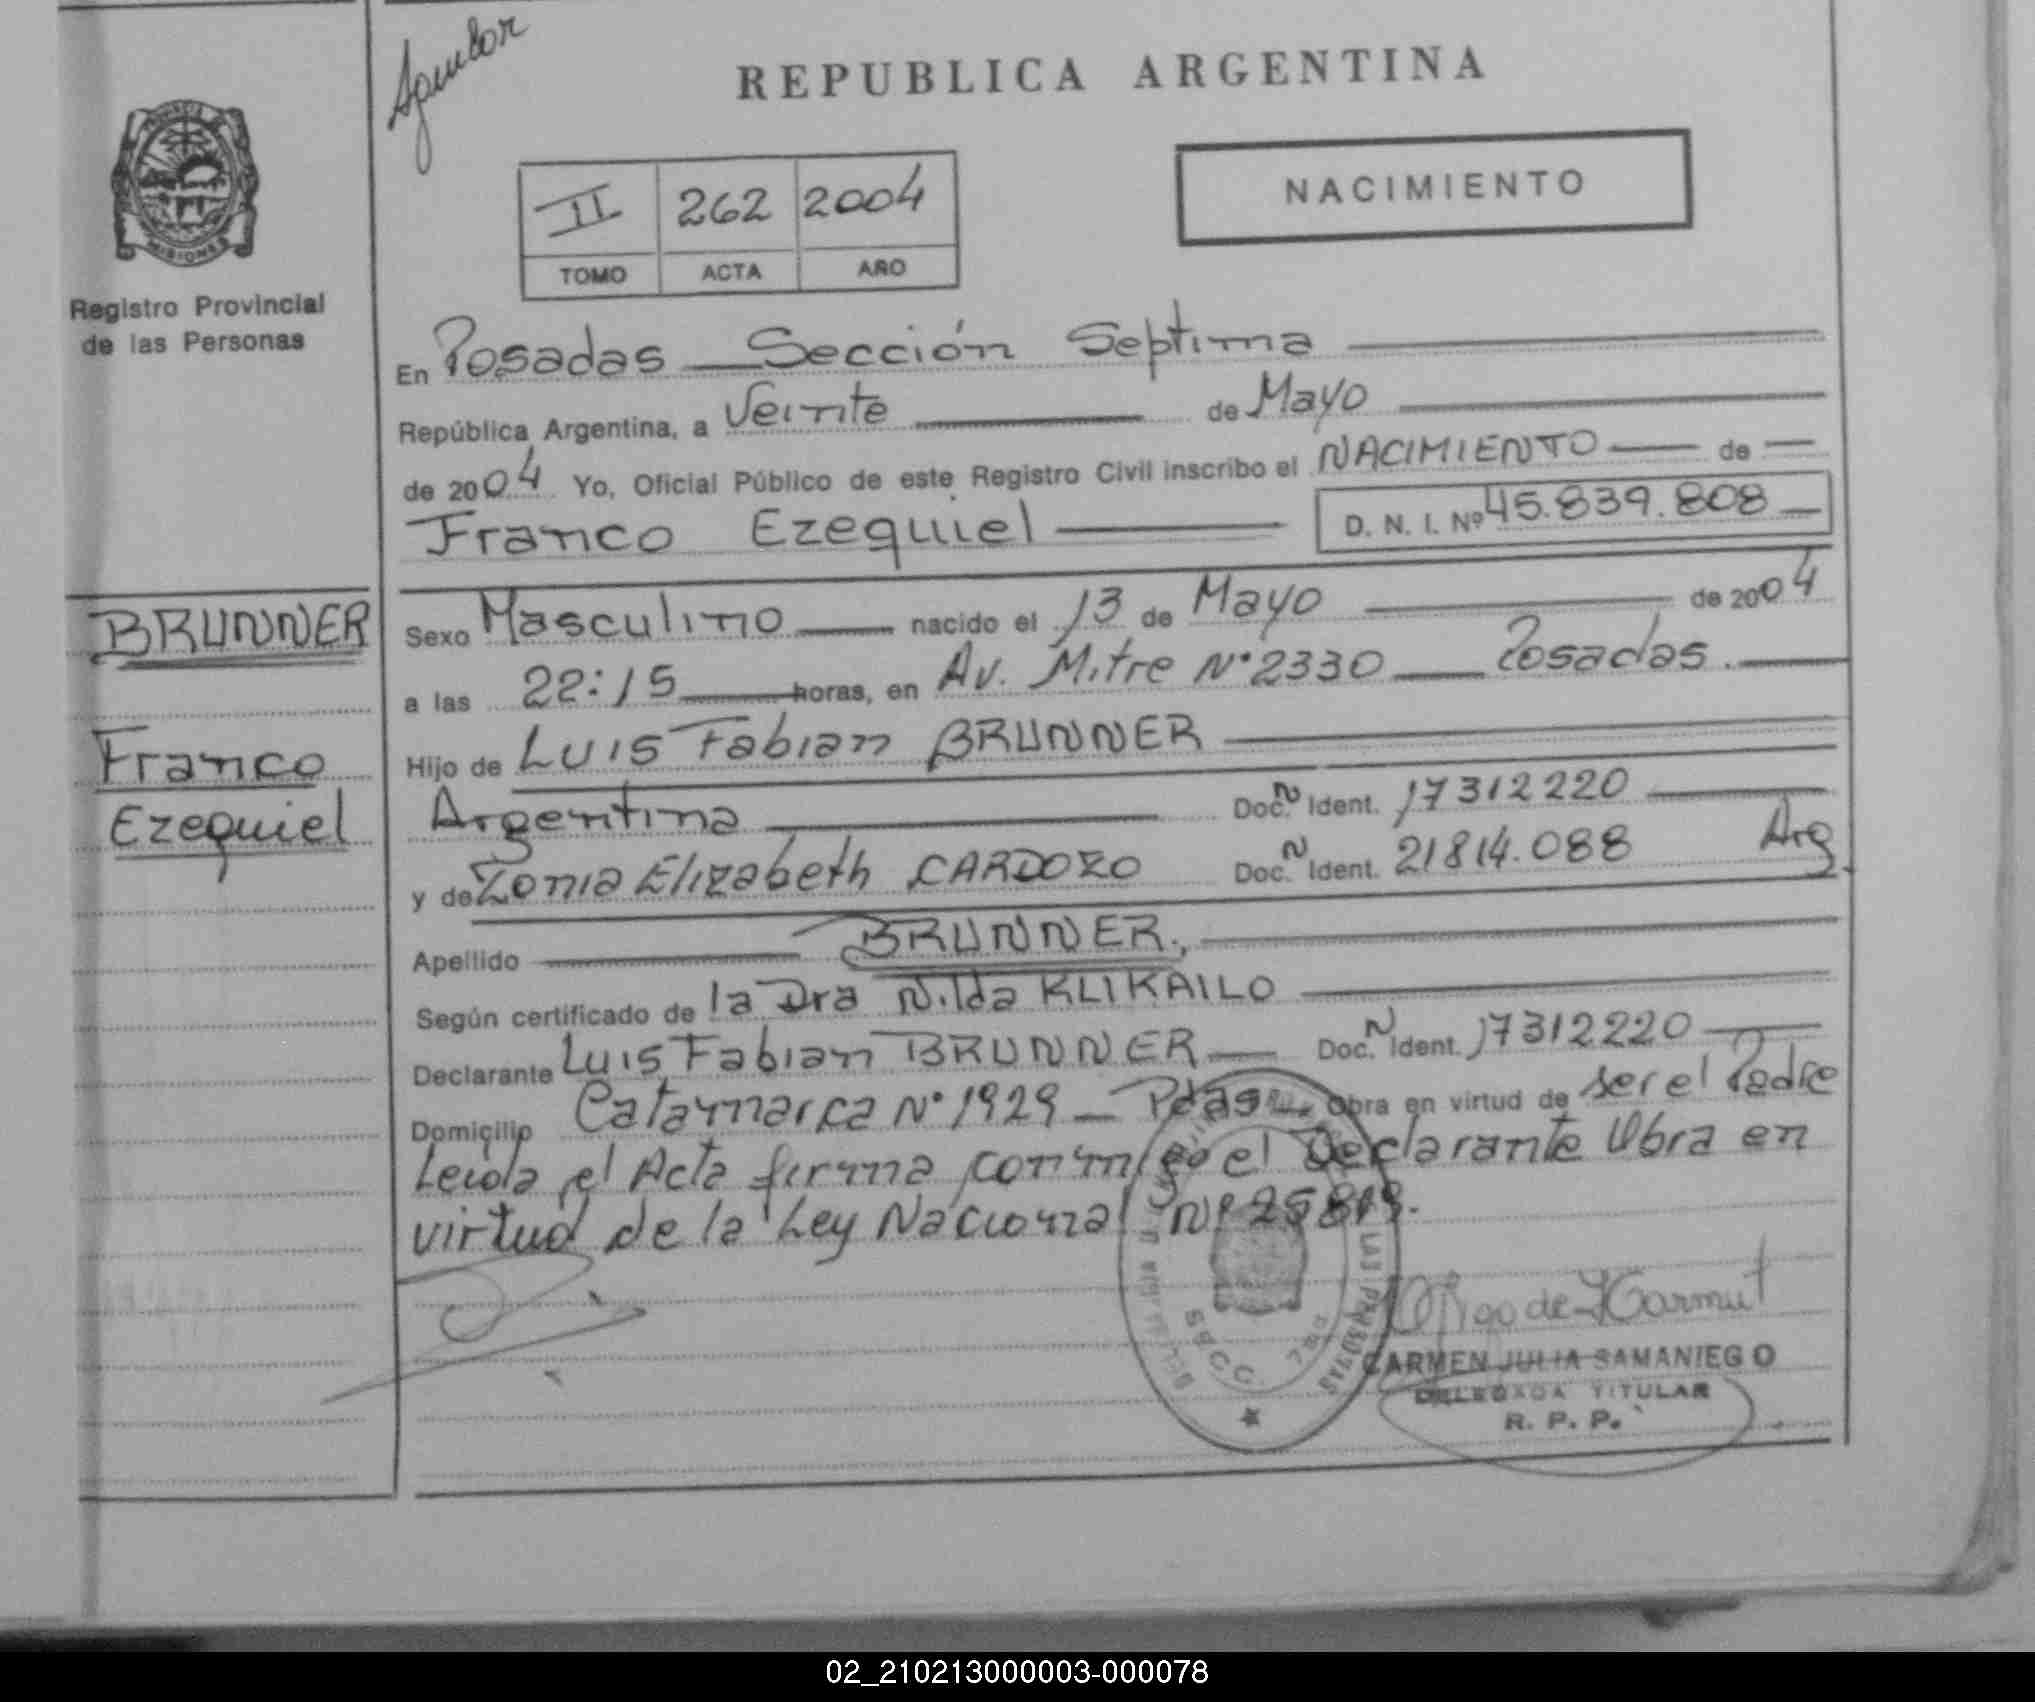 REPUBLICA ARGENTINA
NACIMIENTO
II 262 2004
TOMO ACTA AÑO
PROVINCIA
MISIONES
Registro Provincial
de las Personas
En Posadas — Sección Septima
República Argentina, a Veinte de Mayo
de 2004 Yo, Oficial Público de este Registro Civil inscribo el NACIMIENTO — de —
Franco Ezequiel — D. N. I. Nº 45.839.808 —
BRUNNER
Franco
Ezequiel
Sexo Masculino — nacido el 13 de Mayo — de 2004
a las 22:15 — horas, en Av. Mitre N° 2330 — Posadas. —
Hijo de Luis Fabian BRUNNER —
Argentina — Doc. N Ident. 17312220 —
y de Zonia Elizabeth CARDOZO Doc. N Ident. 21814.088 Arg.
Apellido — BRUNNER., —
Según certificado de la Dra Nilda KLIKAILO —
Declarante Luis Fabian BRUNNER — Doc. N Ident. 17312220 —
Domicilio Catamarca N° 1929 — Pdas —. Obra en virtud de ser el Padre
Leida el Acta firma conmigo el Declarante Obra en
virtud de la Ley Nacional N° 25819.
LAS PERSONAS
SECC.
CARMEN JULIA SAMANIEGO
DELEGADA TITULAR
R. P. P.
02_210213000003-000078